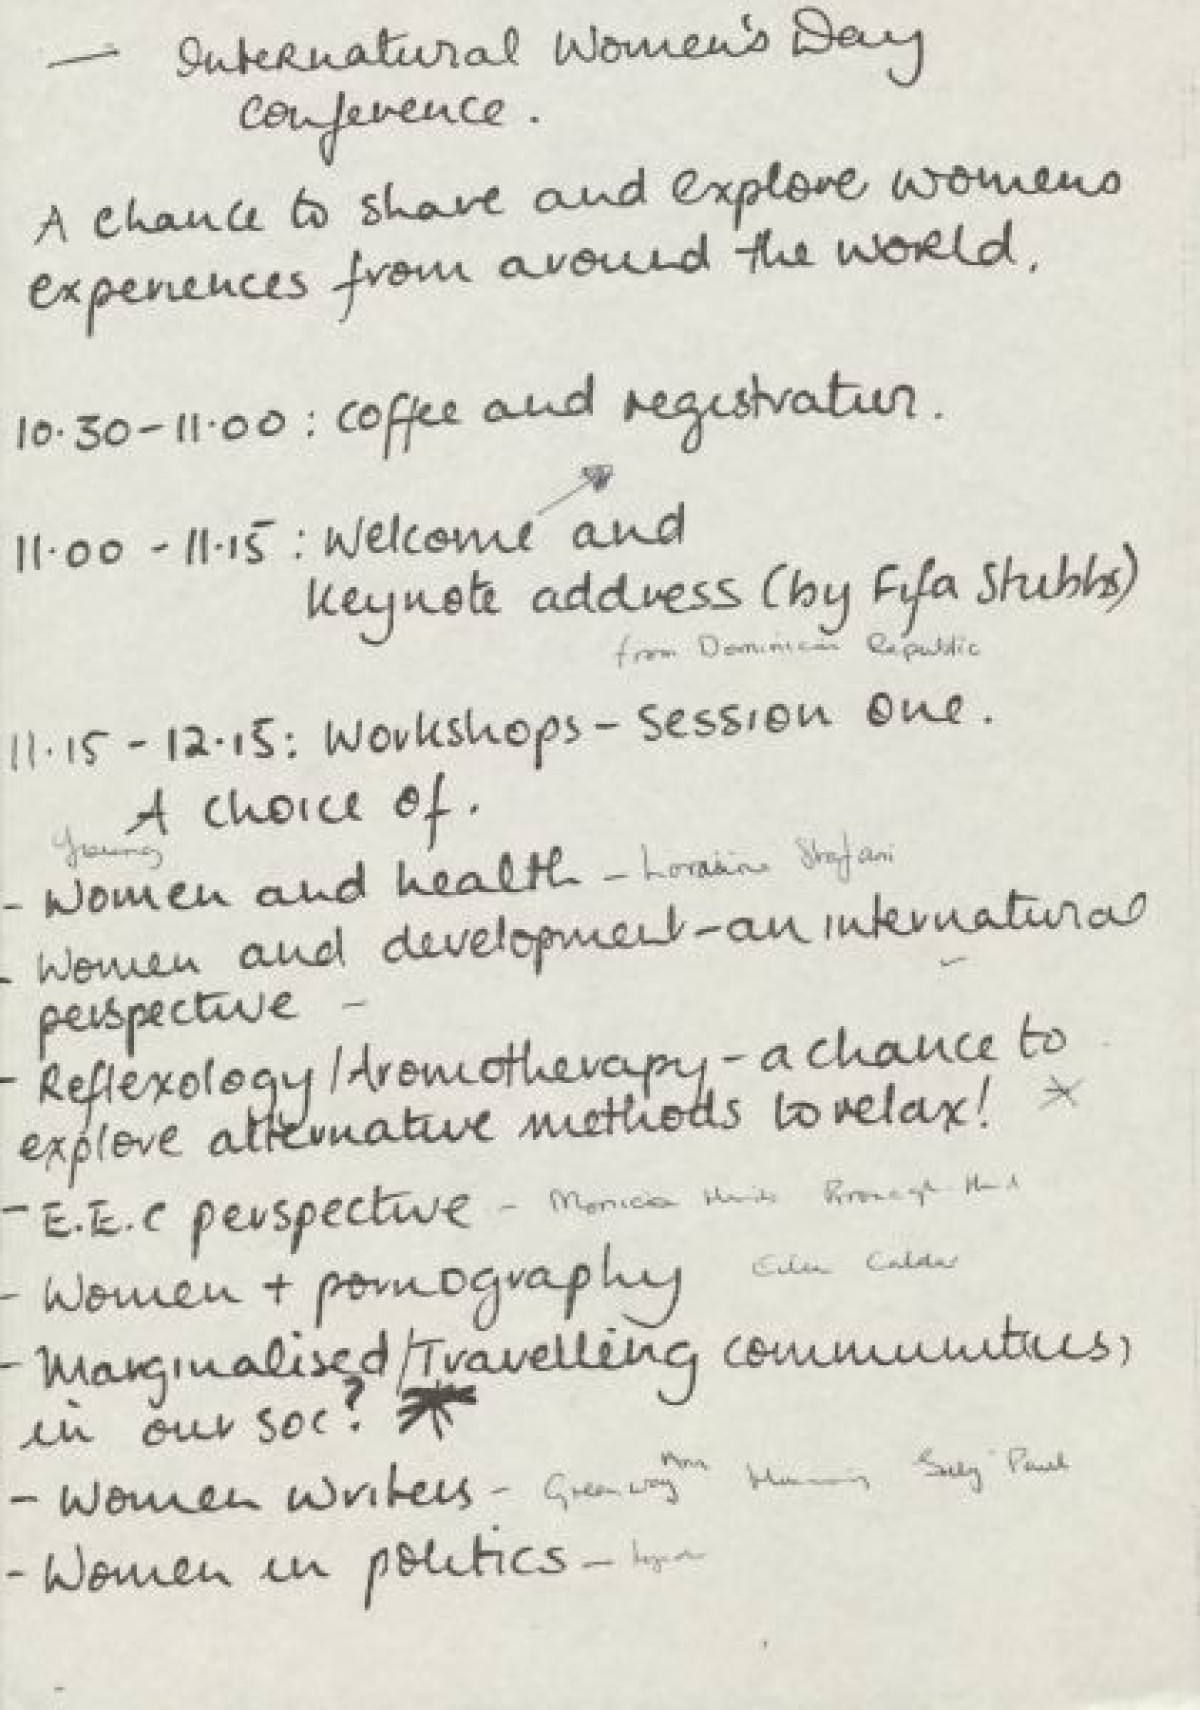 — International Women's Day
Conference.
A chance to share and explore womens
experiences from around the world.
10.30-11.00: Coffee and registration.
11.00 - 11.15: Welcome and
Keynote address (by Fifa Stubbs)
from Dominican Republic
11.15 - 12.15: Workshops - Session one.
A choice of.
Young
- Women and health - Loraine
- Women and development - an international
perspective -
- Reflexology / Aromotherapy - a chance to
explore alternative methods to relax!
- E.E.C perspective - Monica
- Women + pornography Calder
- Marginalised / Travelling communities,
in our soc?
Ann
- Women writers - Greenway Paul
- Women in politics -